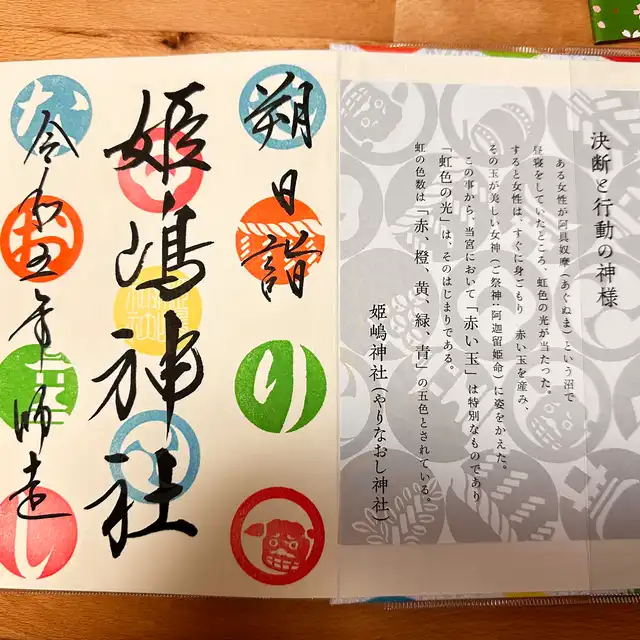 決断と行動の神様
ある女性が阿具奴摩(あぐぬま)という沼で
昼寝をしていたところ、虹色の光が当たった。
すると女性は、すぐに身ごもり 赤い玉を産み、
その玉が美しい女神(ご祭神:阿迦留姫命)に姿をかえた。
この事から、当宮において「赤い玉」は特別なものであり
「虹色の光」は、そのはじまりである。
虹の色数は「赤、橙、黄、緑、青」の五色とされている。
姫嶋神社(やりなおし神社)
朔日詣
り
姫嶋神社
令和五年師走
な
お
し